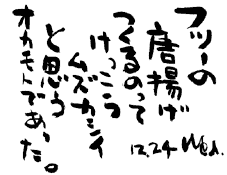 フツーの
唐揚げ
つくるのって
けっこう
ムズカシイ
と思う
オカモトであった。
12.24 Wed.